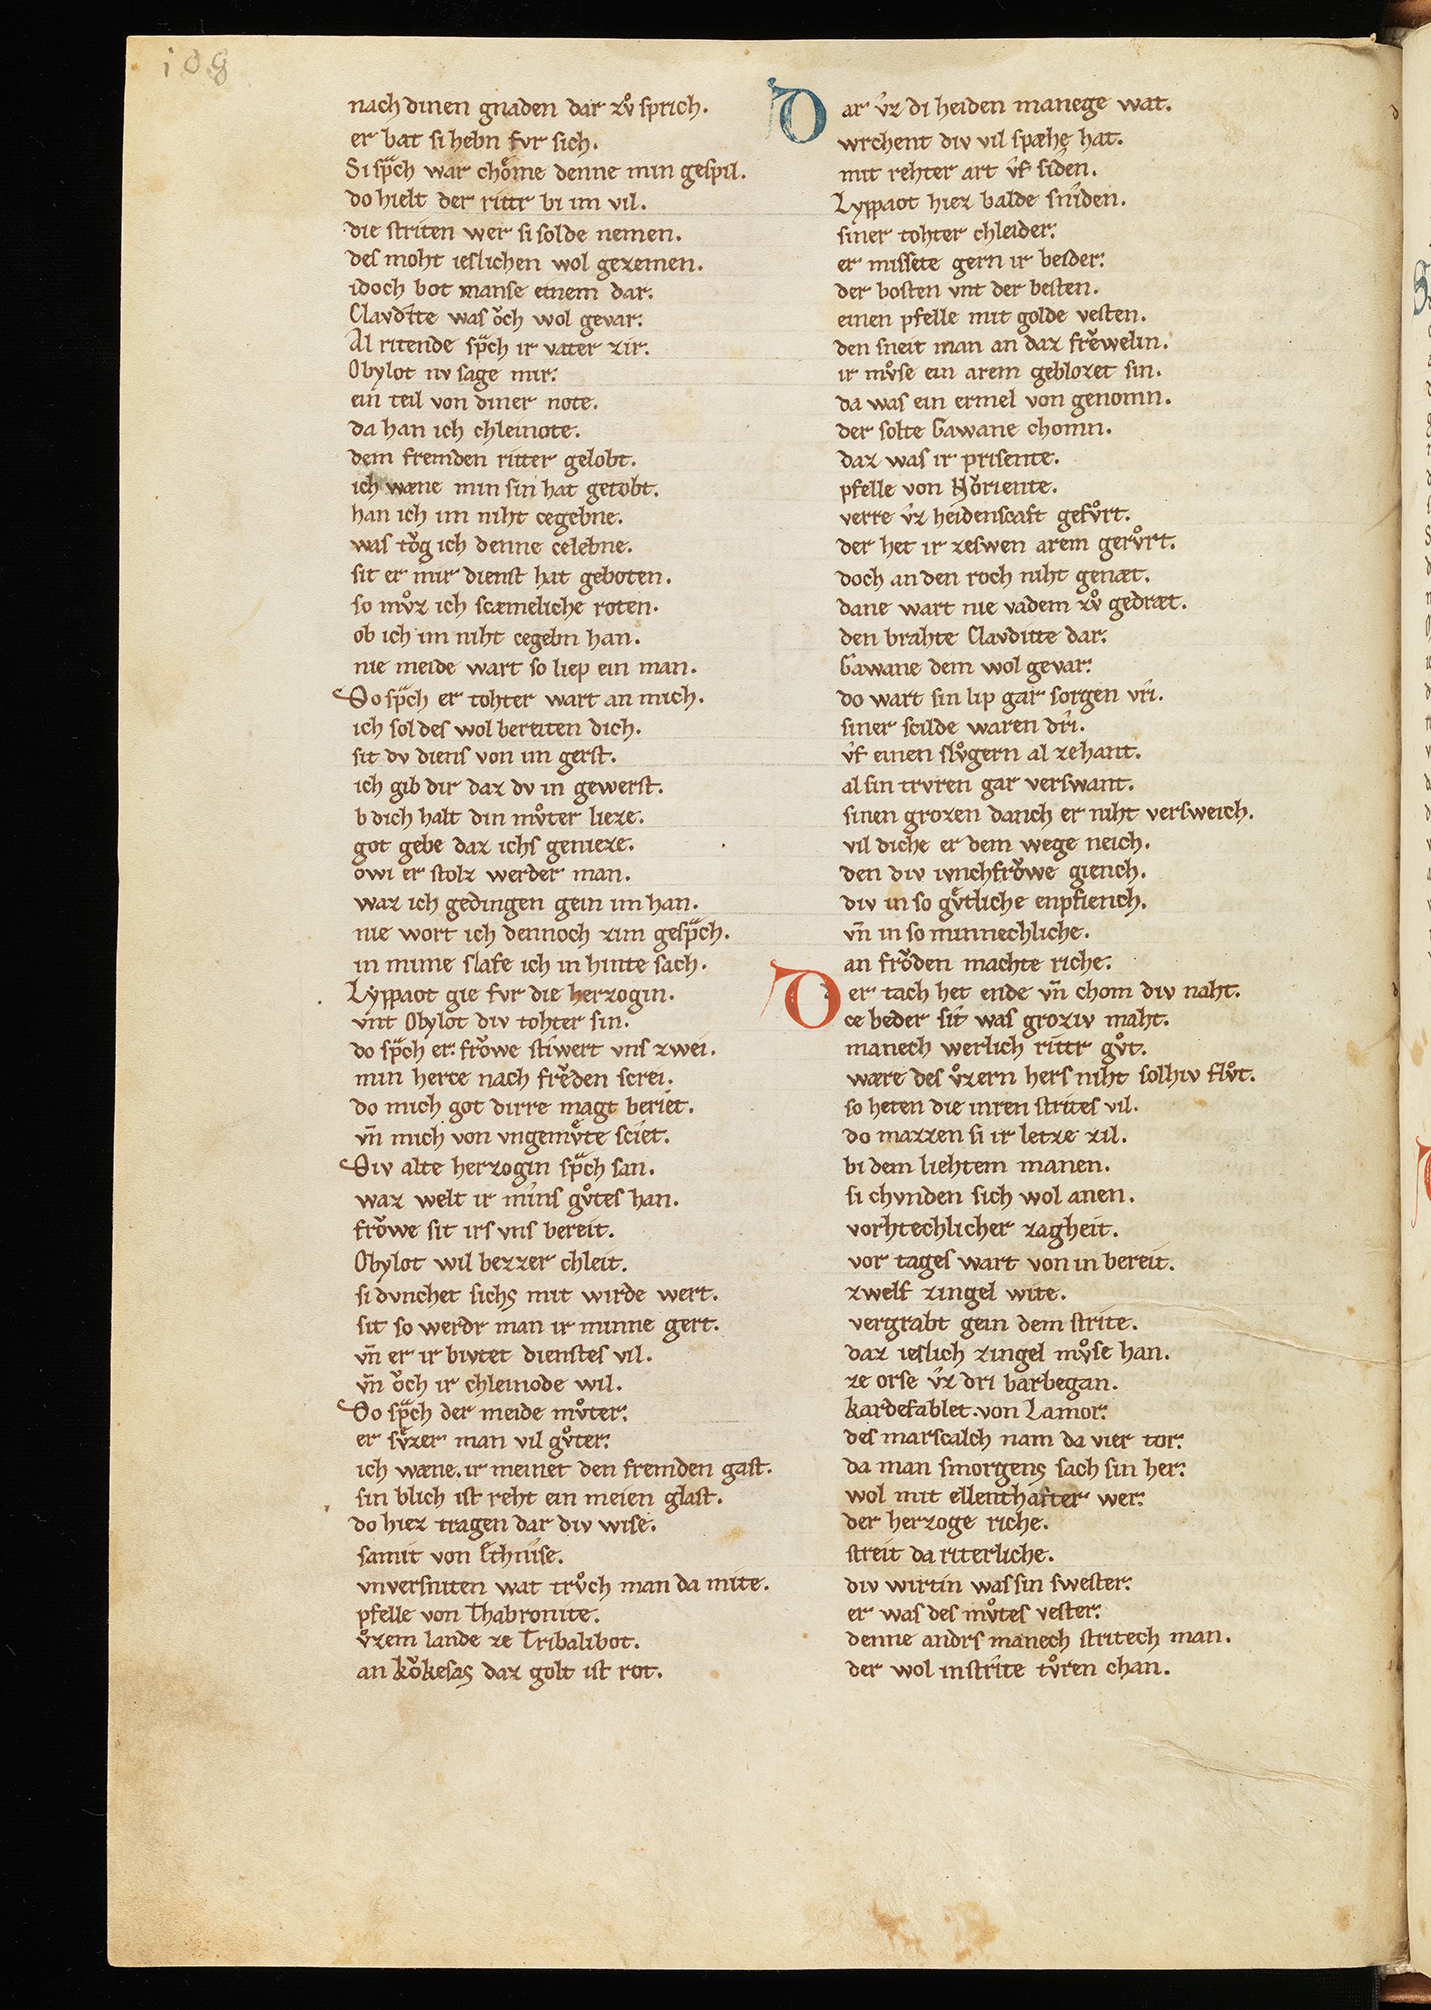 108
nach dinen gnaden dar zuͦ sprich.
er bat si hebn fvr sich.
Si spᷓch war choͤme denne min gespil.
do hielt der rittr bi im vil.
die striten wer si solde nemen.
des moht ieslichen wol gezemen.
idoch bot manse einem dar.
Clavditte was oͮch wol gevar.
Al ritende spᷓch ir vater zir.
Obylot nv sage mir.
ein teil von diner note.
da han ich chleinote.
dem fremden ritter gelobt.
ich wæne min sin hat getobt.
han ich im niht cegebne.
was toͮg ich denne celebne.
sit er mir dienst hat geboten.
so mvͦz ich scæmeliche roten.
ob ich im niht cegebn han.
nie meide wart so liep ein man.
Do spᷓch er tohter wart an mich.
ich sol des wol bereiten dich.
sit dv diens von im gerst.
ich gib dir daz dv in gewerst.
b dich halt din mvͦter lieze.
got gebe daz ichs genieze.
owi er stolz werder man.
waz ich gedingen gein im han.
nie wort ich dennoch zim gespᷓch.
in mime slafe ich in hinte sach.
Lyppaot gie fvr die herzogin.
vnt Obylot div tohter sin.
do spᷓch er. froͮwe stiwert vns zwei.
min herce nach freͮden screi.
do mich got dirre magt beriet.
vn̄ mich von vngemvͤte sciet.
Div alte herzogin spᷓch san.
waz welt ir mins gvͦtes han.
froͮwe sit irs vns bereit.
Obylot wil bezzer chleit.
si dvnchet sichs mit wirde wert.
sit so werdr man ir minne gert.
vn̄ er ir bivtet dienstes vil.
vn̄ oͮch ir chleinode wil.
Do spᷓch der meide mvͦter.
er svͤzer man vil gvͦter.
ich wæne. ir meinet den fremden gast.
sin blich ist reht ein meien glast.
do hiez tragen dar div wise.
samit von Ethnise.
vnversniten wat trvͦch man da mite.
pfelle von Thabronite.
vͦzem lande ze Tribalibot.
an koͮkesas daz golt ist rot.
Dar vz di heiden manege wat.
wrchent div vil spæhe hat.
mit rehter art vf siden.
Lyppaot hiez balde sniden.
siner tohter chleider.
er missete gern ir beider.
der bosten vnt der besten.
einen pfelle mit golde vesten.
den sneit man an daz freͮwelin.
ir mvͦse ein arem geblozet sin.
da was ein ermel von genomn.
der solte Gawane chomn.
daz was ir prisente.
pfelle von Noͮriente.
verre vz heidenscaft gefvͦrt.
der het ir zeswen arem gervͦrt.
doch an den roch niht genæt.
dane wart nie vadem zvͦ gedræt.
den brahte Clavditte dar.
Gawane dem wol gevar.
do wart sin lip gar sorgen vri.
siner scilde waren dri.
vf einen slvͦgern al zehant.
al sin trvren gar verswant.
sinen grozen danch er niht versweich.
vil diche er dem wege neich.
den div ivnchfroͮwe giench.
div in so gvͤtliche enpfiench.
vn̄ in so minnechliche.
an froͮden machte riche.
Der tach het ende vn̄ chom div naht.
ce beder sit was groziv maht.
manech werlich rittr gvͦt.
wære des vͦzern hers niht solhiv flvͦt.
so heten die inren strites vil.
do mazzen si ir letze zil.
bi dem liehtem manen.
si chvnden sich wol anen.
vorhtechlicher zagheit.
vor tages wart von in bereit.
zwelf zingel wite.
vergrabt gein dem strite.
daz ieslich zingel mvͦse han.
ze orse vz dri barbegan.
kardefablet. von Lamor.
des marscalch nam da vier tor.
da man smorgens sach sin her.
wol mit ellenthafter wer.
der herzoge riche.
streit da riterliche.
div wirtin was sin swester.
er was des mvͦtes vester.
denne andrs manech stritech man.
der wol in strite tvͦren chan.